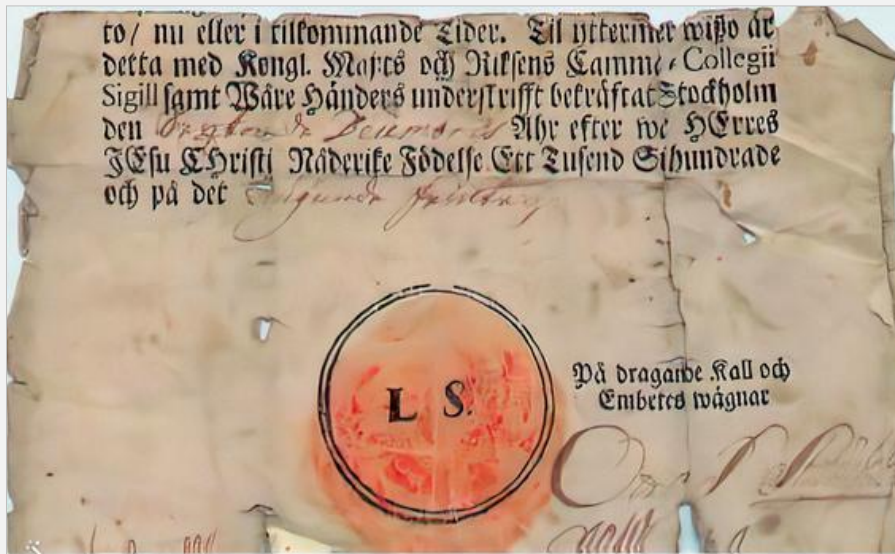 to/ nu eller i tilkommande Tider. Til yttermer wißo är
detta med Kongl. Maj:ts och Riksens Camme-Collegii
Sigill samt Wåre Händers underskrifft bekräftat Stockholm
den Ahr efter we HErres
JEsu CHristi Näderike Födelse Ett Tusend Sihundrade
och på det
L S.
På dragande Kall och
Embetes wägnar